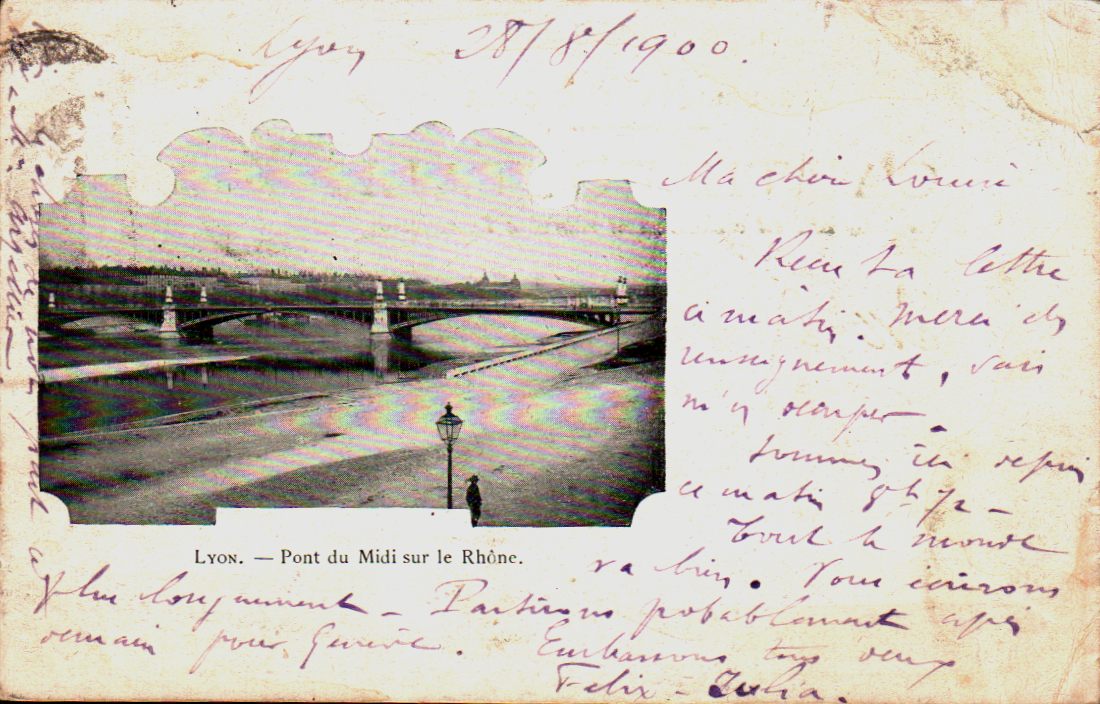 Lyon 28/8/1900.
Ma chère Louise
Reçu ta lettre
ce matin. Merci des
renseignements, vais
m'y occuper.
Sommes ici depuis
ce matin 8h 1/2 -
Tout le monde
va bien. Vous écrirons
plus longuement - Partirons probablement après
demain pour Genève. Embrassons tous deux
Felix - Julia.
LYON. — Pont du Midi sur le Rhône.